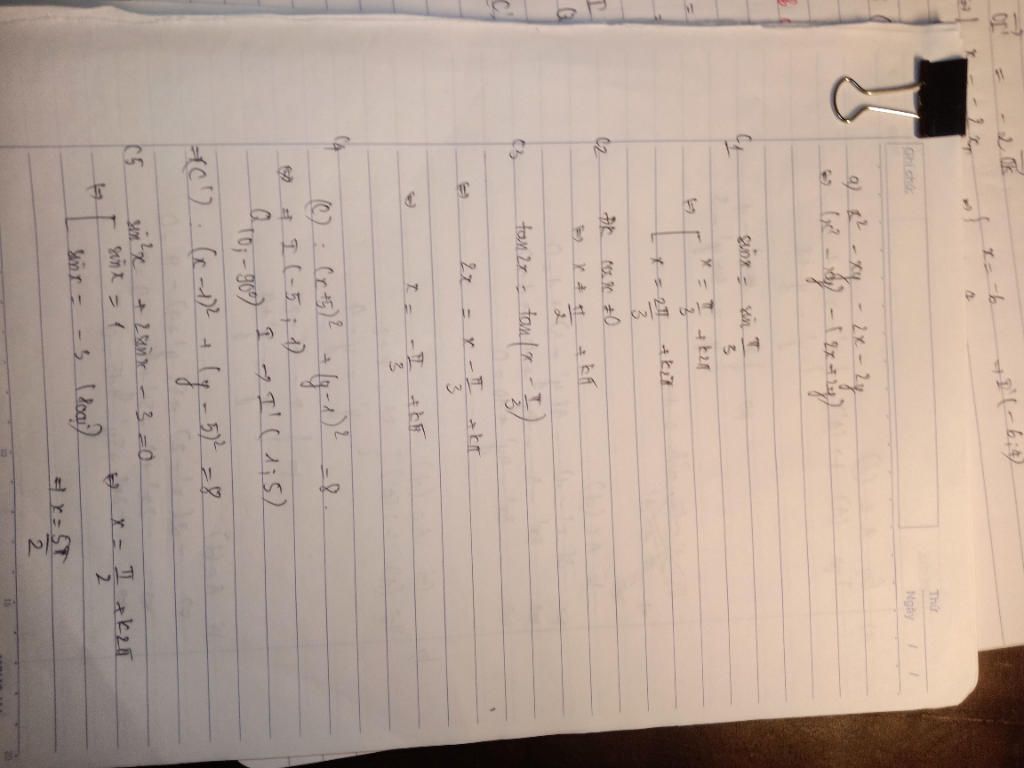 x = -b
→ I'(-b; 4)
Ghi chú:
Thứ
Ngày / /
a) x² - xy - 2x - 2y
⇔ (x² - xy) - (2x + 2y)
C1 sinx = sin π/3
⇔ [ x = π/3 + k2π
x = 2π/3 + k2π
C2 cosx ≠ 0
⇔ x ≠ π/2 + kπ
C3 tan2x = tan(x - π/3)
⇔ 2x = x - π/3 + kπ
⇔ x = -π/3 + kπ
C4 (C) : (x+5)² + (y-1)² = 8.
⇔ I(-5; 1)
Q(0, -90°) I → I'(1; 5)
⇒ (C') : (x-1)² + (y-5)² = 8
C5 sin²x + 2sinx - 3 = 0
⇔ [ sinx = 1 ⇔ x = π/2 + k2π
sinx = -3 (loại)
⇒ x = 5π/2